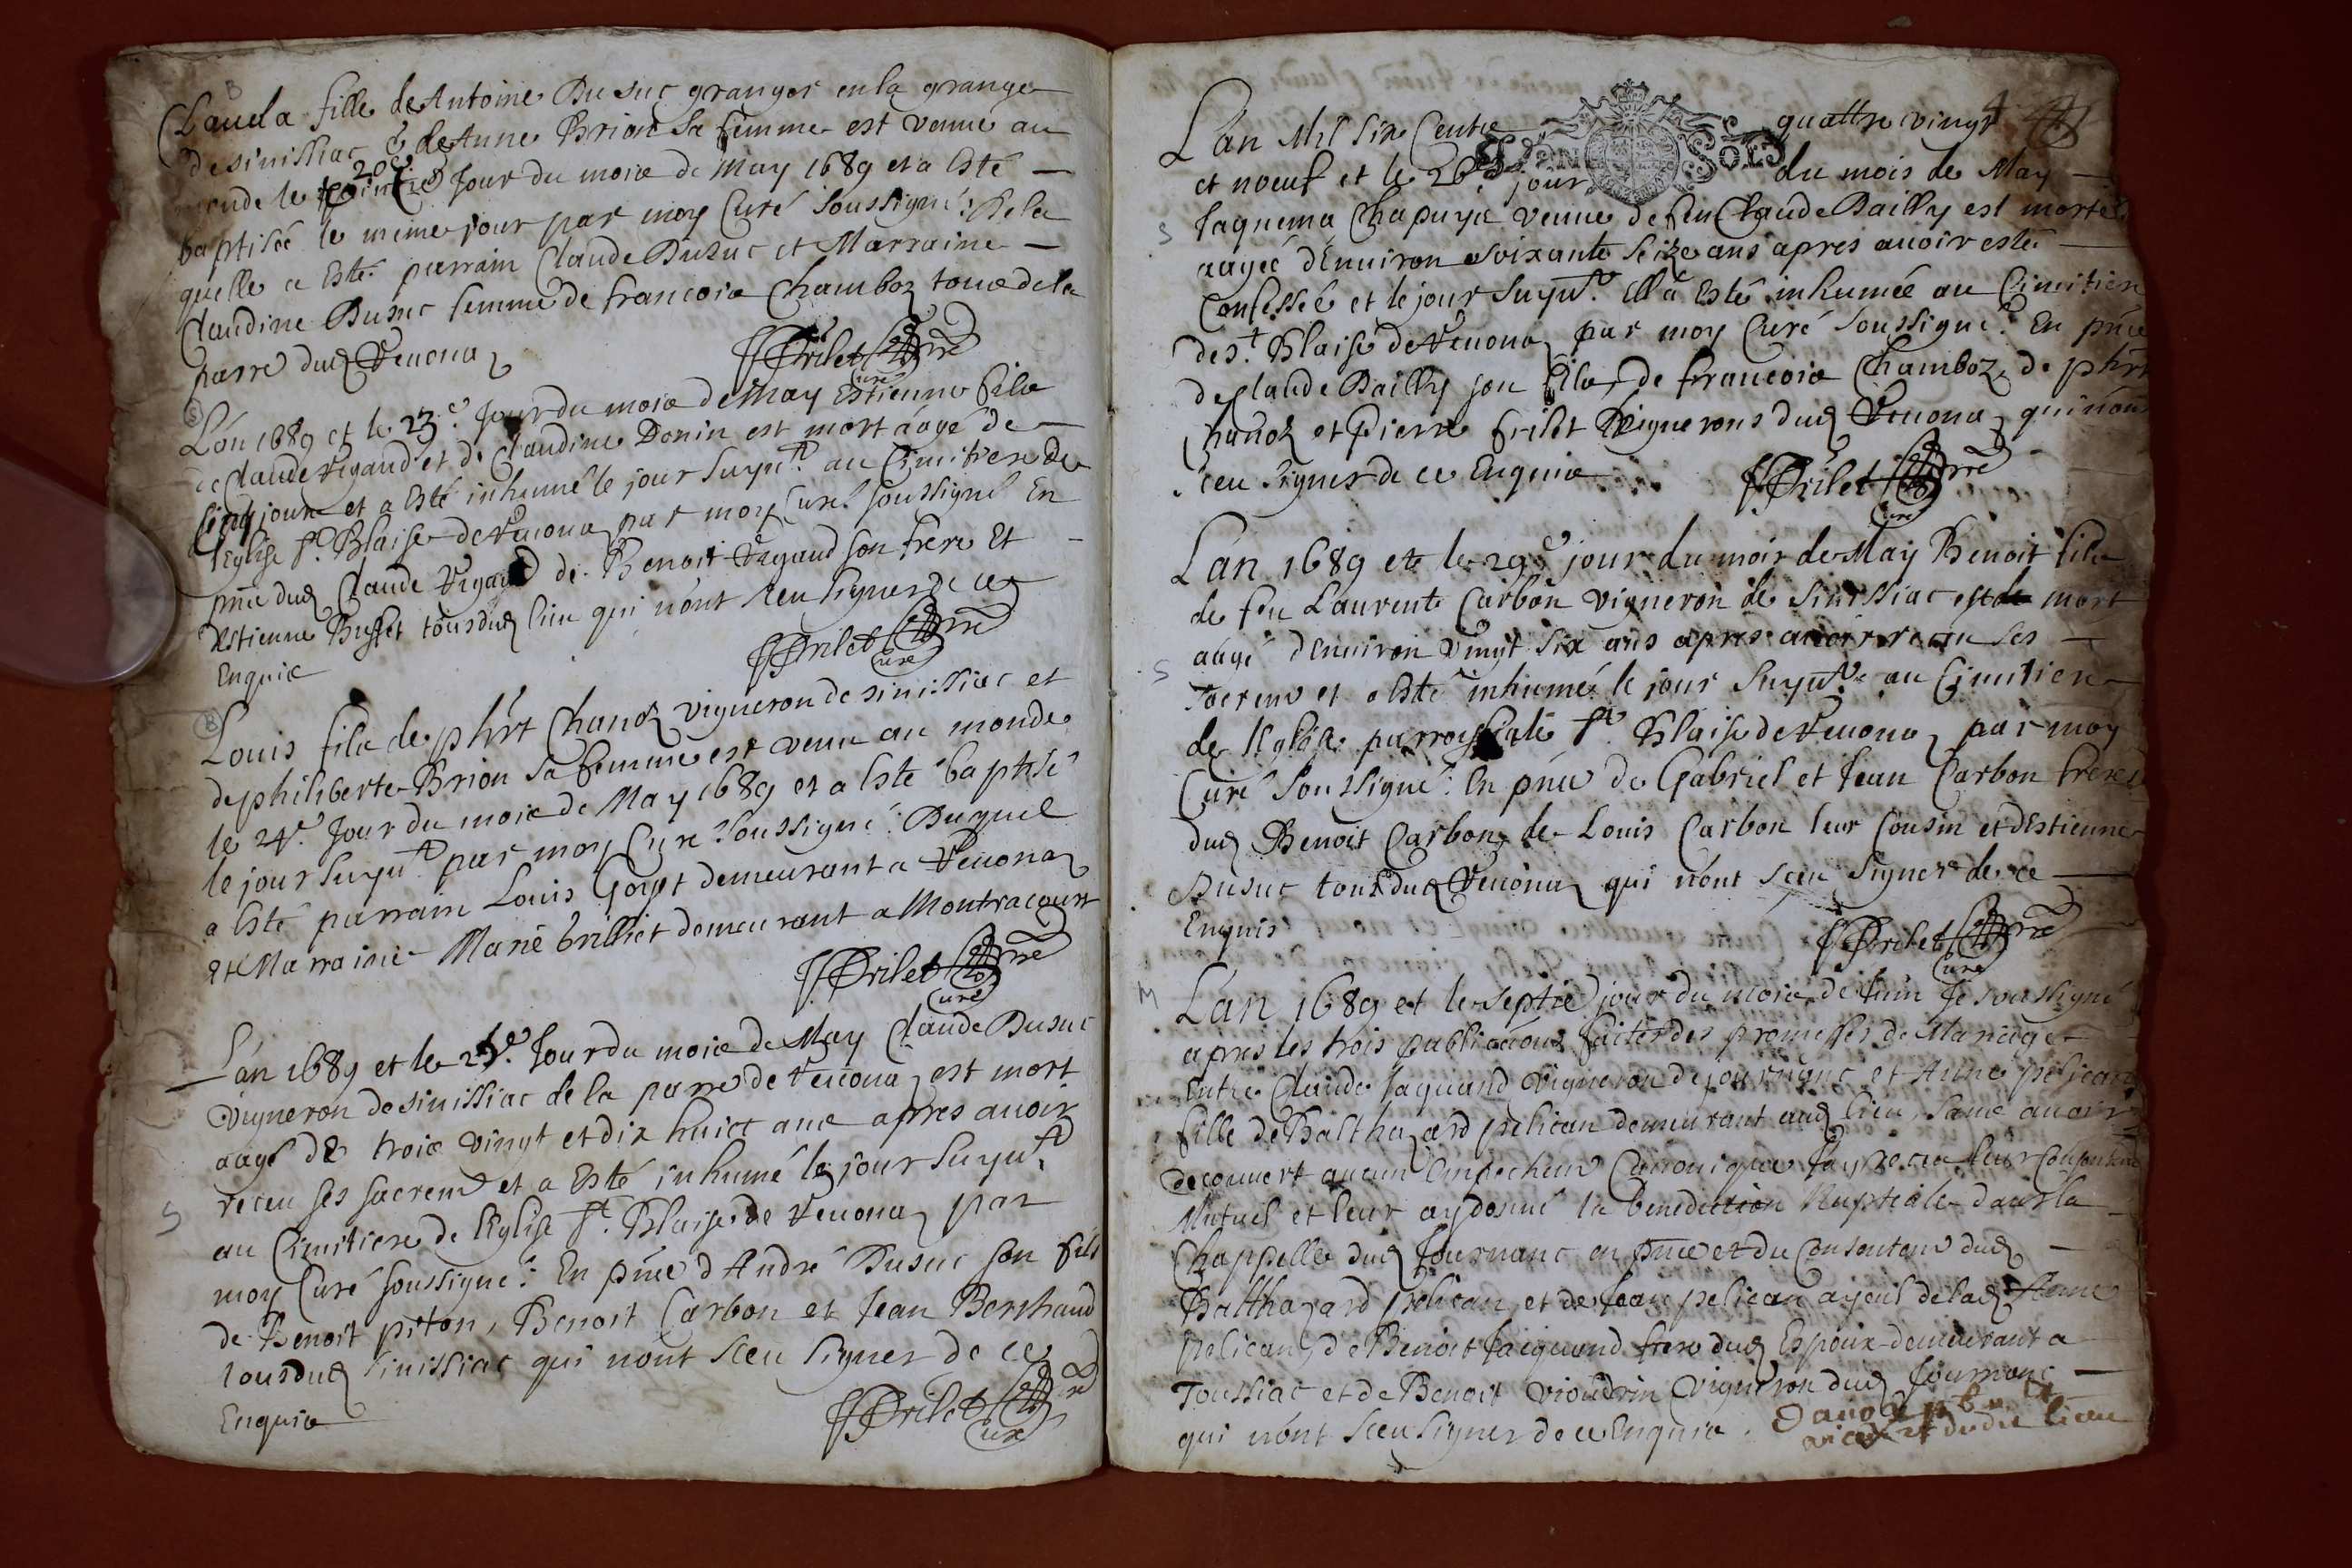 Clauda fille de Antoine Dusuc granger en la grange
de sinissiac & de Anne Brion sa femme est venue au
monde le 20e Jour du mois de May 1689 et a Esté
baptisée le meme jour par moy Curé soussigné : De la
quelle a Esté parrain Claude Dusuc et Marraine
Claudine Dusuc femme de francois Chamboz tous de la
parre dud Veuona
Frilet pre
Curé
L'an 1689 et le 23e Jour du mois de May Estienne fils
de Claude Vigaud et de Claudine Donin est mort aagé de
Cinq jours et a Esté inhumé le jour suyut au Cimitiere de
l'Eglise st Blaise de Veuona par moy Curé soussigné En
pnce dud Claude Vigaud de Benoit Vigaud son frere Et
destienne Buffet tous dud lieu qui n'ont sceu signer de ce
Enquis
Frilet pre
Curé
Louis fils de phlrt Chanoz vigneron de sinissiac et
de philiberte Brion sa femme est venu au monde
le 24e Jour du mois de May 1689 et a Esté baptisé
le jour suyut par moy Cure soussigné : Duquel
a Esté parrain Louis Goyet demeurant a Veuona
Et Marraine Marie brilliet demeurant a Montracourt
Frilet pre
Curé
L'an 1689 et le Jour du mois de May Claude Dusuc
Vigneron de sinissiac de la parre de Veuona est mort
aagé de trois vingt et dix huict ans apres avoir
receu ses sacremts et a Esté inhumé le jour suyut
au Cimitiere de l'Eglise st Blaise de Veuona par
moy Curé soussigné : En pnce d'André Dusuc son fils
de Benoit piton, Benoit Carbon et Jean Berthaud
tous dud sinissiac qui n'ont sceu signer de ce
Enquis
Frilet pre
Curé
4
L'an Mil Six Cents quattre vingt
et noeuf et le 26e jour du mois de May
Jaquema Chapuys veuue de feu Claude Bailly est morte
aagée d'Enuiron soixante seize ans apres auoir esté
Confessée et le jour suyut Ell'a Esté inhumée au Cimitiere
de st Blaise de Veuona par moy Curé soussigné : En pnce
de Claude Bailly son fils, de francois Chamboz, de phlrt
Chanoz et Pierre frilet Vignerons dud Veuona qui n'ont
sceu signer de ce Enquis
Frilet pre
Curé
L'an 1689 et le 29e jour du mois de May Benoit fils
de feu Laurent Carbon vigneron de sinissiac est mort
aagé d'Enuiron vingt six ans apres auoir receu ses
sacremts et a Esté inhumé le jour suyut au Cimitiere
de l'Eglise parroissiale st Blaise de Veuona par moy
Curé soussigné : En pnce de Gabriel et Jean Carbon freres
dud Benoit Carbon, de Louis Carbon leur Cousin et d'Estienne
Dusuc tous dud Veuona qui n'ont sceu signer de ce
Enquis
Frilet pre
Curé
L'an 1689 et le septie jour du mois de Juin Je soussigné
apres les trois publications faites des promesses de Mariage
Entre Claude Jaquand vigneron de Journans et Anne pelican
fille de Balthazard pelican demeurant aud lieu, sans auoir
decouuert aucun Empechemt Canonique J'ay receu leur Consentemt
Mutuel et leur ay donné la benediction Nuptiale dans la
Chappelle dud Journans en pnce et du Consentemt dud
Balthazard pelican, et de Jean pelican ayeul de lad Anne
pelican, de Benoit Jacquand frere dud Espoux demeurant a
Toussiac et de Benoit Vioudrin Vigneron dud Journans
qui n'ont sceu signer de ce Enquis.
dudit lieu